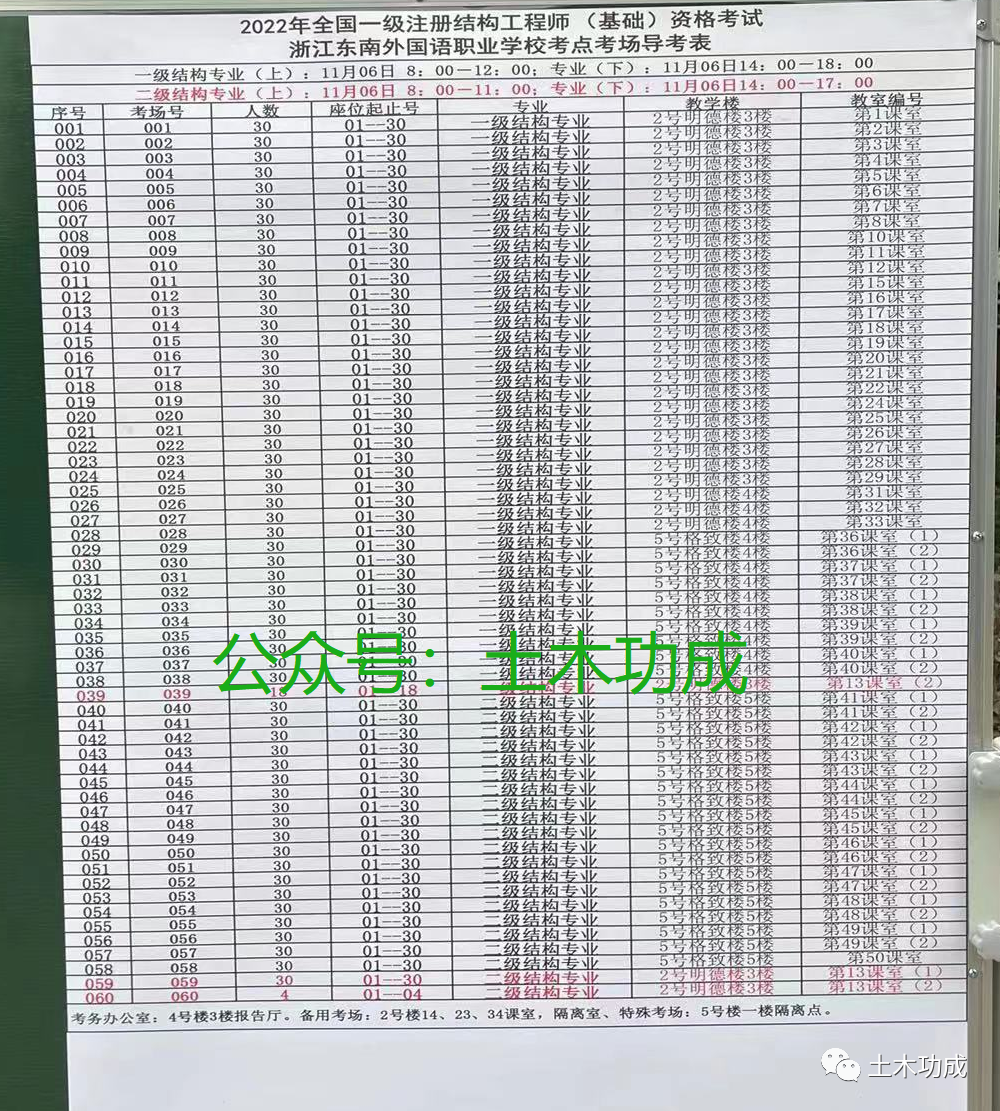 2022年全国一级注册结构工程师（基础）资格考试
浙江东南外国语职业学校考点考场导考表
一级结构专业（上）：11月06日 8：00－12：00；专业（下）：11月06日14：00－18：00
二级结构专业（上）：11月06日 8：00－11：00；专业（下）：11月06日14：00－17：00
序号 考场号 人数 座位起止号 专业 教学楼 教室编号
001 001 30 01--30 一级结构专业 2号明德楼3楼 第1课室
002 002 30 01--30 一级结构专业 2号明德楼3楼 第2课室
003 003 30 01--30 一级结构专业 2号明德楼3楼 第3课室
004 004 30 01--30 一级结构专业 2号明德楼3楼 第4课室
005 005 30 01--30 一级结构专业 2号明德楼3楼 第5课室
006 006 30 01--30 一级结构专业 2号明德楼3楼 第6课室
007 007 30 01--30 一级结构专业 2号明德楼3楼 第7课室
008 008 30 01--30 一级结构专业 2号明德楼3楼 第8课室
009 009 30 01--30 一级结构专业 2号明德楼3楼 第10课室
010 010 30 01--30 一级结构专业 2号明德楼3楼 第11课室
011 011 30 01--30 一级结构专业 2号明德楼3楼 第12课室
012 012 30 01--30 一级结构专业 2号明德楼3楼 第15课室
013 013 30 01--30 一级结构专业 2号明德楼3楼 第16课室
014 014 30 01--30 一级结构专业 2号明德楼3楼 第17课室
015 015 30 01--30 一级结构专业 2号明德楼3楼 第18课室
016 016 30 01--30 一级结构专业 2号明德楼3楼 第19课室
017 017 30 01--30 一级结构专业 2号明德楼3楼 第20课室
018 018 30 01--30 一级结构专业 2号明德楼3楼 第21课室
019 019 30 01--30 一级结构专业 2号明德楼3楼 第22课室
020 020 30 01--30 一级结构专业 2号明德楼3楼 第24课室
021 021 30 01--30 一级结构专业 2号明德楼3楼 第25课室
022 022 30 01--30 一级结构专业 2号明德楼3楼 第26课室
023 023 30 01--30 一级结构专业 2号明德楼3楼 第27课室
024 024 30 01--30 一级结构专业 2号明德楼3楼 第28课室
025 025 30 01--30 一级结构专业 2号明德楼3楼 第29课室
026 026 30 01--30 一级结构专业 2号明德楼4楼 第31课室
027 027 30 01--30 一级结构专业 2号明德楼4楼 第32课室
028 028 30 01--30 一级结构专业 2号明德楼4楼 第33课室
029 029 30 01--30 一级结构专业 5号格致楼4楼 第36课室（1）
030 030 30 01--30 一级结构专业 5号格致楼4楼 第36课室（2）
031 031 30 01--30 一级结构专业 5号格致楼4楼 第37课室（1）
032 032 30 01--30 一级结构专业 5号格致楼4楼 第37课室（2）
033 033 30 01--30 一级结构专业 5号格致楼4楼 第38课室（1）
034 034 30 01--30 一级结构专业 5号格致楼4楼 第38课室（2）
035 035 30 01--30 一级结构专业 5号格致楼4楼 第39课室（1）
036 036 30 01--30 一级结构专业 5号格致楼4楼 第39课室（2）
037 037 30 01--30 一级结构专业 5号格致楼4楼 第40课室（1）
038 038 30 01--30 一级结构专业 5号格致楼4楼 第40课室（2）
039 039 18 01--18 专业 楼3楼 第13课室（2）
公众号：土木功成
040 040 30 01--30 二级结构专业 5号格致楼5楼 第41课室（1）
041 041 30 01--30 二级结构专业 5号格致楼5楼 第41课室（2）
042 042 30 01--30 二级结构专业 5号格致楼5楼 第42课室（1）
043 043 30 01--30 二级结构专业 5号格致楼5楼 第42课室（2）
044 044 30 01--30 二级结构专业 5号格致楼5楼 第43课室（1）
045 045 30 01--30 二级结构专业 5号格致楼5楼 第43课室（2）
046 046 30 01--30 二级结构专业 5号格致楼5楼 第44课室（1）
047 047 30 01--30 二级结构专业 5号格致楼5楼 第44课室（2）
048 048 30 01--30 二级结构专业 5号格致楼5楼 第45课室（1）
049 049 30 01--30 二级结构专业 5号格致楼5楼 第45课室（2）
050 050 30 01--30 二级结构专业 5号格致楼5楼 第46课室（1）
051 051 30 01--30 二级结构专业 5号格致楼5楼 第46课室（2）
052 052 30 01--30 二级结构专业 5号格致楼5楼 第47课室（1）
053 053 30 01--30 二级结构专业 5号格致楼5楼 第47课室（2）
054 054 30 01--30 二级结构专业 5号格致楼5楼 第48课室（1）
055 055 30 01--30 二级结构专业 5号格致楼5楼 第48课室（2）
056 056 30 01--30 二级结构专业 5号格致楼5楼 第49课室（1）
057 057 30 01--30 二级结构专业 5号格致楼5楼 第49课室（2）
058 058 30 01--30 二级结构专业 5号格致楼5楼 第50课室
059 059 30 01--30 二级结构专业 2号明德楼3楼 第13课室（1）
060 060 4 01--04 二级结构专业 2号明德楼3楼 第13课室（2）
考务办公室：4号楼3楼报告厅。备用考场：2号楼14、23、34课室，隔离室、特殊考场：5号楼一楼隔离点。
土木功成